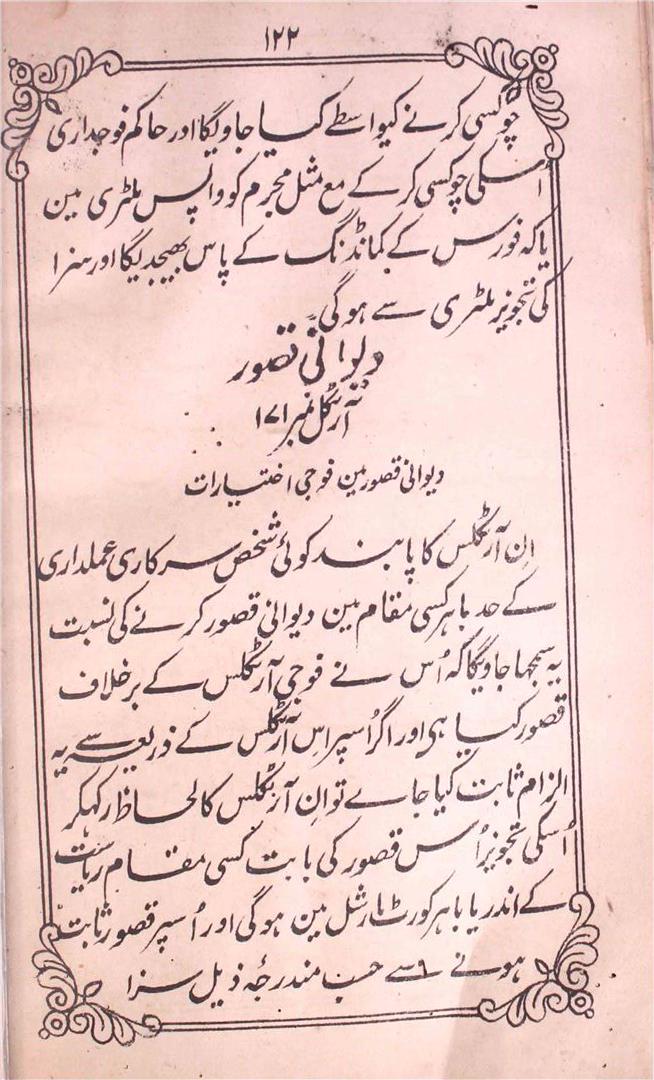 ۱۲۲
چوکسی کرنے کیواسطے کیا جاویگا اور حاکم فوجداری
اُسکی چوکسی کرکے مع مثل مجرم کو واپس ملٹری مین
یا کہ فورس کے کمانڈنگ کے پاس بھیجدیگا اور سزا
کی تجویز ملٹری سے ہوگی۔
دیوانی قصور
آرٹکل نمبر ۱۷۱
دیوانی قصور مین فوجی اختیارات
اِن آرٹکلس کا پابند کوئی شخص سرکاری عملداری
کے حد باہر کسی مقام مین دیوانی قصور کرنے کی نسبت
یہ سمجھا جاویگا کہ اُس نے فوجی آرٹکلس کے برخلاف
قصور کیا ہی اور اگر اُسپر اِس آرٹکلس کے ذریعہ سے یہ
الزام ثابت کیا جاے تو اِن آرٹکلس کا لحاظ رکہکر
اُسکی تجویز اُس قصور کی بابت کسی مقام ریاست
کے اندر یا باہر کورٹ مارشل مین ہوگی اور اُسپر قصور ثابت
ہونے سے حسب مندرجۂ ذیل سزا